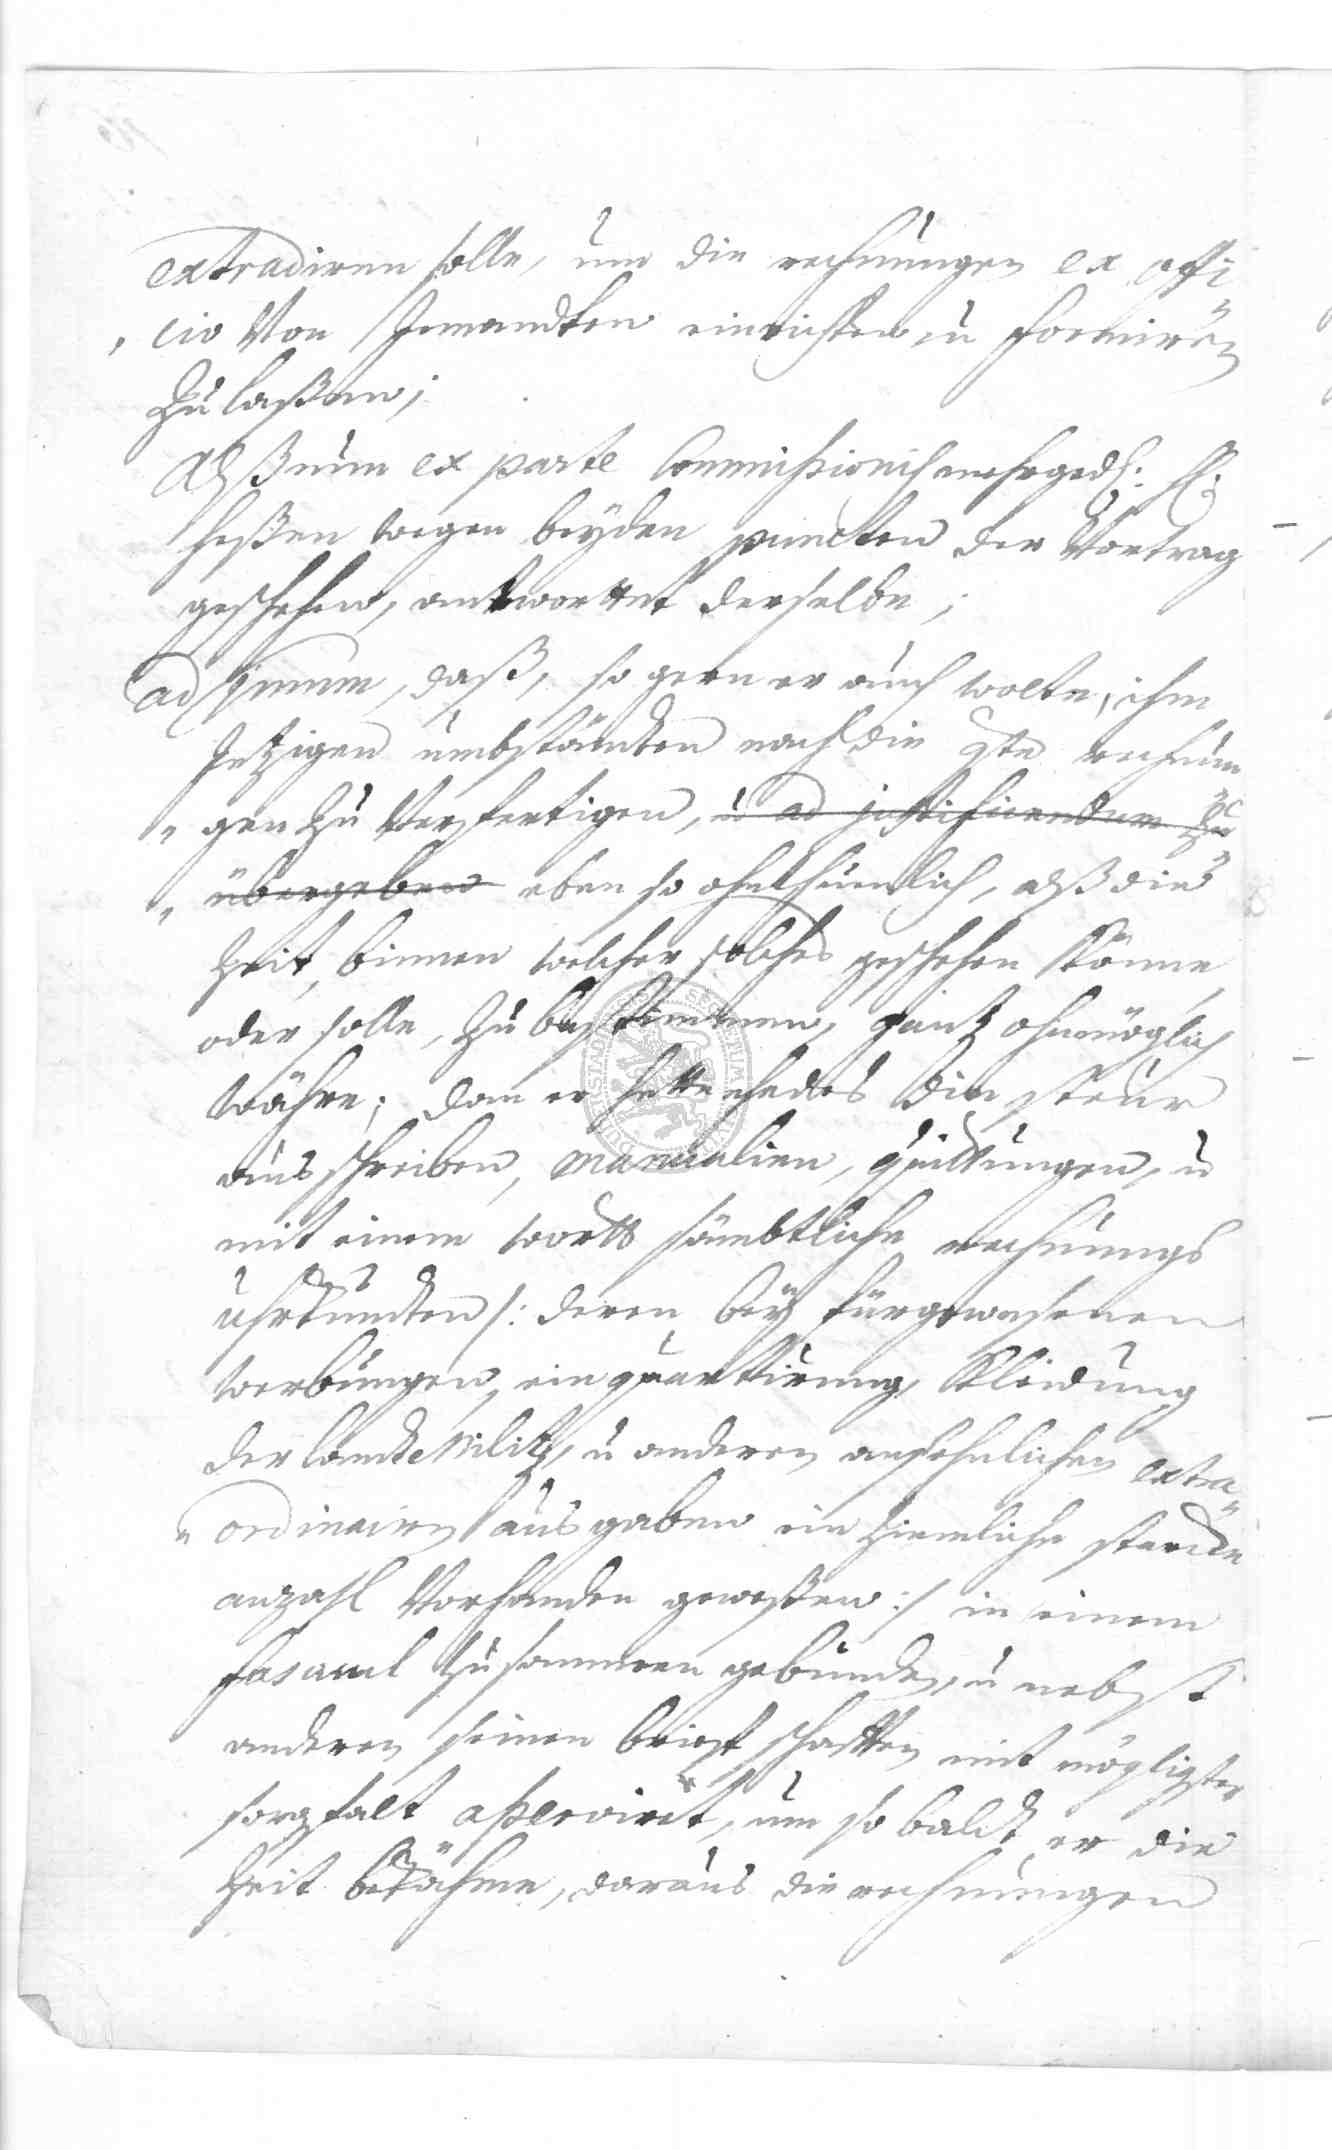 extradiren solle, um die rechnungen ex offi-
cio Von Jemandten einrichten, u formiren
zu laßen;
Alß nun ex parte Commissionis mehrgedh: H:
heßen wegen beyden puncten der Vortrag
geschehen, antworttet derselbe;
ad 1mum, daß, so gern er auch wolte, ihm
Jetzigen umbständen nach die qste rechnun
gen zu Verfertigen, u ad justificandum zu
übergeben eben so ohnthunlich, alß die
Zeit, binnen welcher solches geschehen könne
oder solle, zu bestimmen, gantz ohnmöglich
währe; dan er hette ehedes die steur
ausschreiben, manualien, quittungen, u
mit einem wortt sämbtliche rechnungs
uhrkundten /: deren bey fürgewesenen
werbungen, einquartirung, Kleidung
der landtmilitz, u anderen ansehnlichen extra-
ordinairen ausgaben ein ziemliche starcke
anzahl Vorhanden geweßen :/ in einem
fascicul zusammen gebunden, u nebst
anderen seinen briefschafften mit möglichster
sorgfalt asservirt, um so baldt er die
Zeit bekähme, daraus die rechnungen
SECRETUM